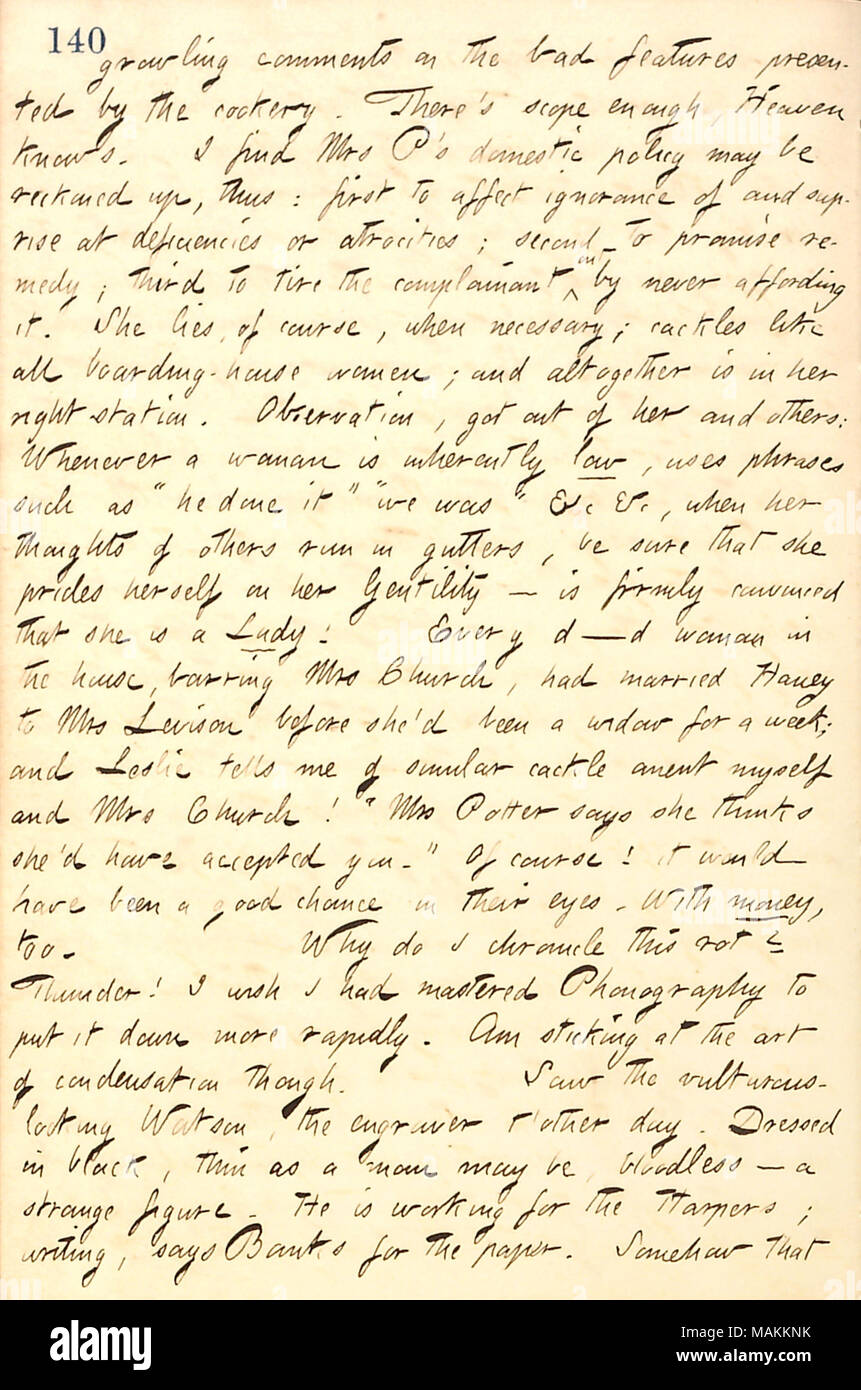 140
growling comments on the bad features presen-
ted by the cookery. There's scope enough, Heaven
knows. I find Mrs P's domestic policy may be
reckoned up, thus: first to affect ignorance of and sup-
rise at deficiencies or atrocities; second to promise re-
medy; third to tire the complainant out by never affording
it. She lies, of course, when necessary; cackles like
all boarding-house women; and altogether is in her
right station. Observation, got out of her and others:
Whenever a woman is inherently low, uses phrases
such as "he done it" "we was" &c &c, when her
thoughts of others run in gutters, be sure that she
prides herself on her Gentility — is firmly convinced
that she is a Lady! Every d—d woman in
the house, barring Mrs Church, had married Haney
to Mrs Levison before she'd been a widow for a week;
and Leslie tells me of similar cackle anent myself
and Mrs Church! "Mrs Potter says she thinks
she'd have accepted you." Of course! it would
have been a good chance in their eyes. With money,
too. Why do I chronicle this rot?
Thunder! I wish I had mastered Phonography to
put it down more rapidly. Am sticking at the art
of condensation though. Saw the vulturous-
looking Watson, the engraver t'other day. Dressed
in black, thin as a man may be, bloodless — a
strange figure. He is working for the Harpers;
writing, says Banks for the paper. Somehow that
alamy
Image ID: MAKKNK
www.alamy.com